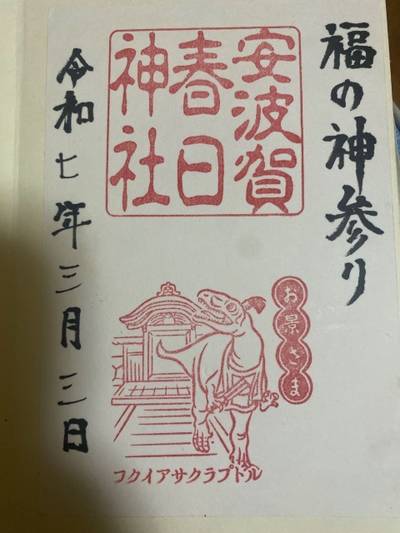 福の神参り
安波賀
春日
神社
お景さま
フクイアサクラプトル
令和七年三月三日